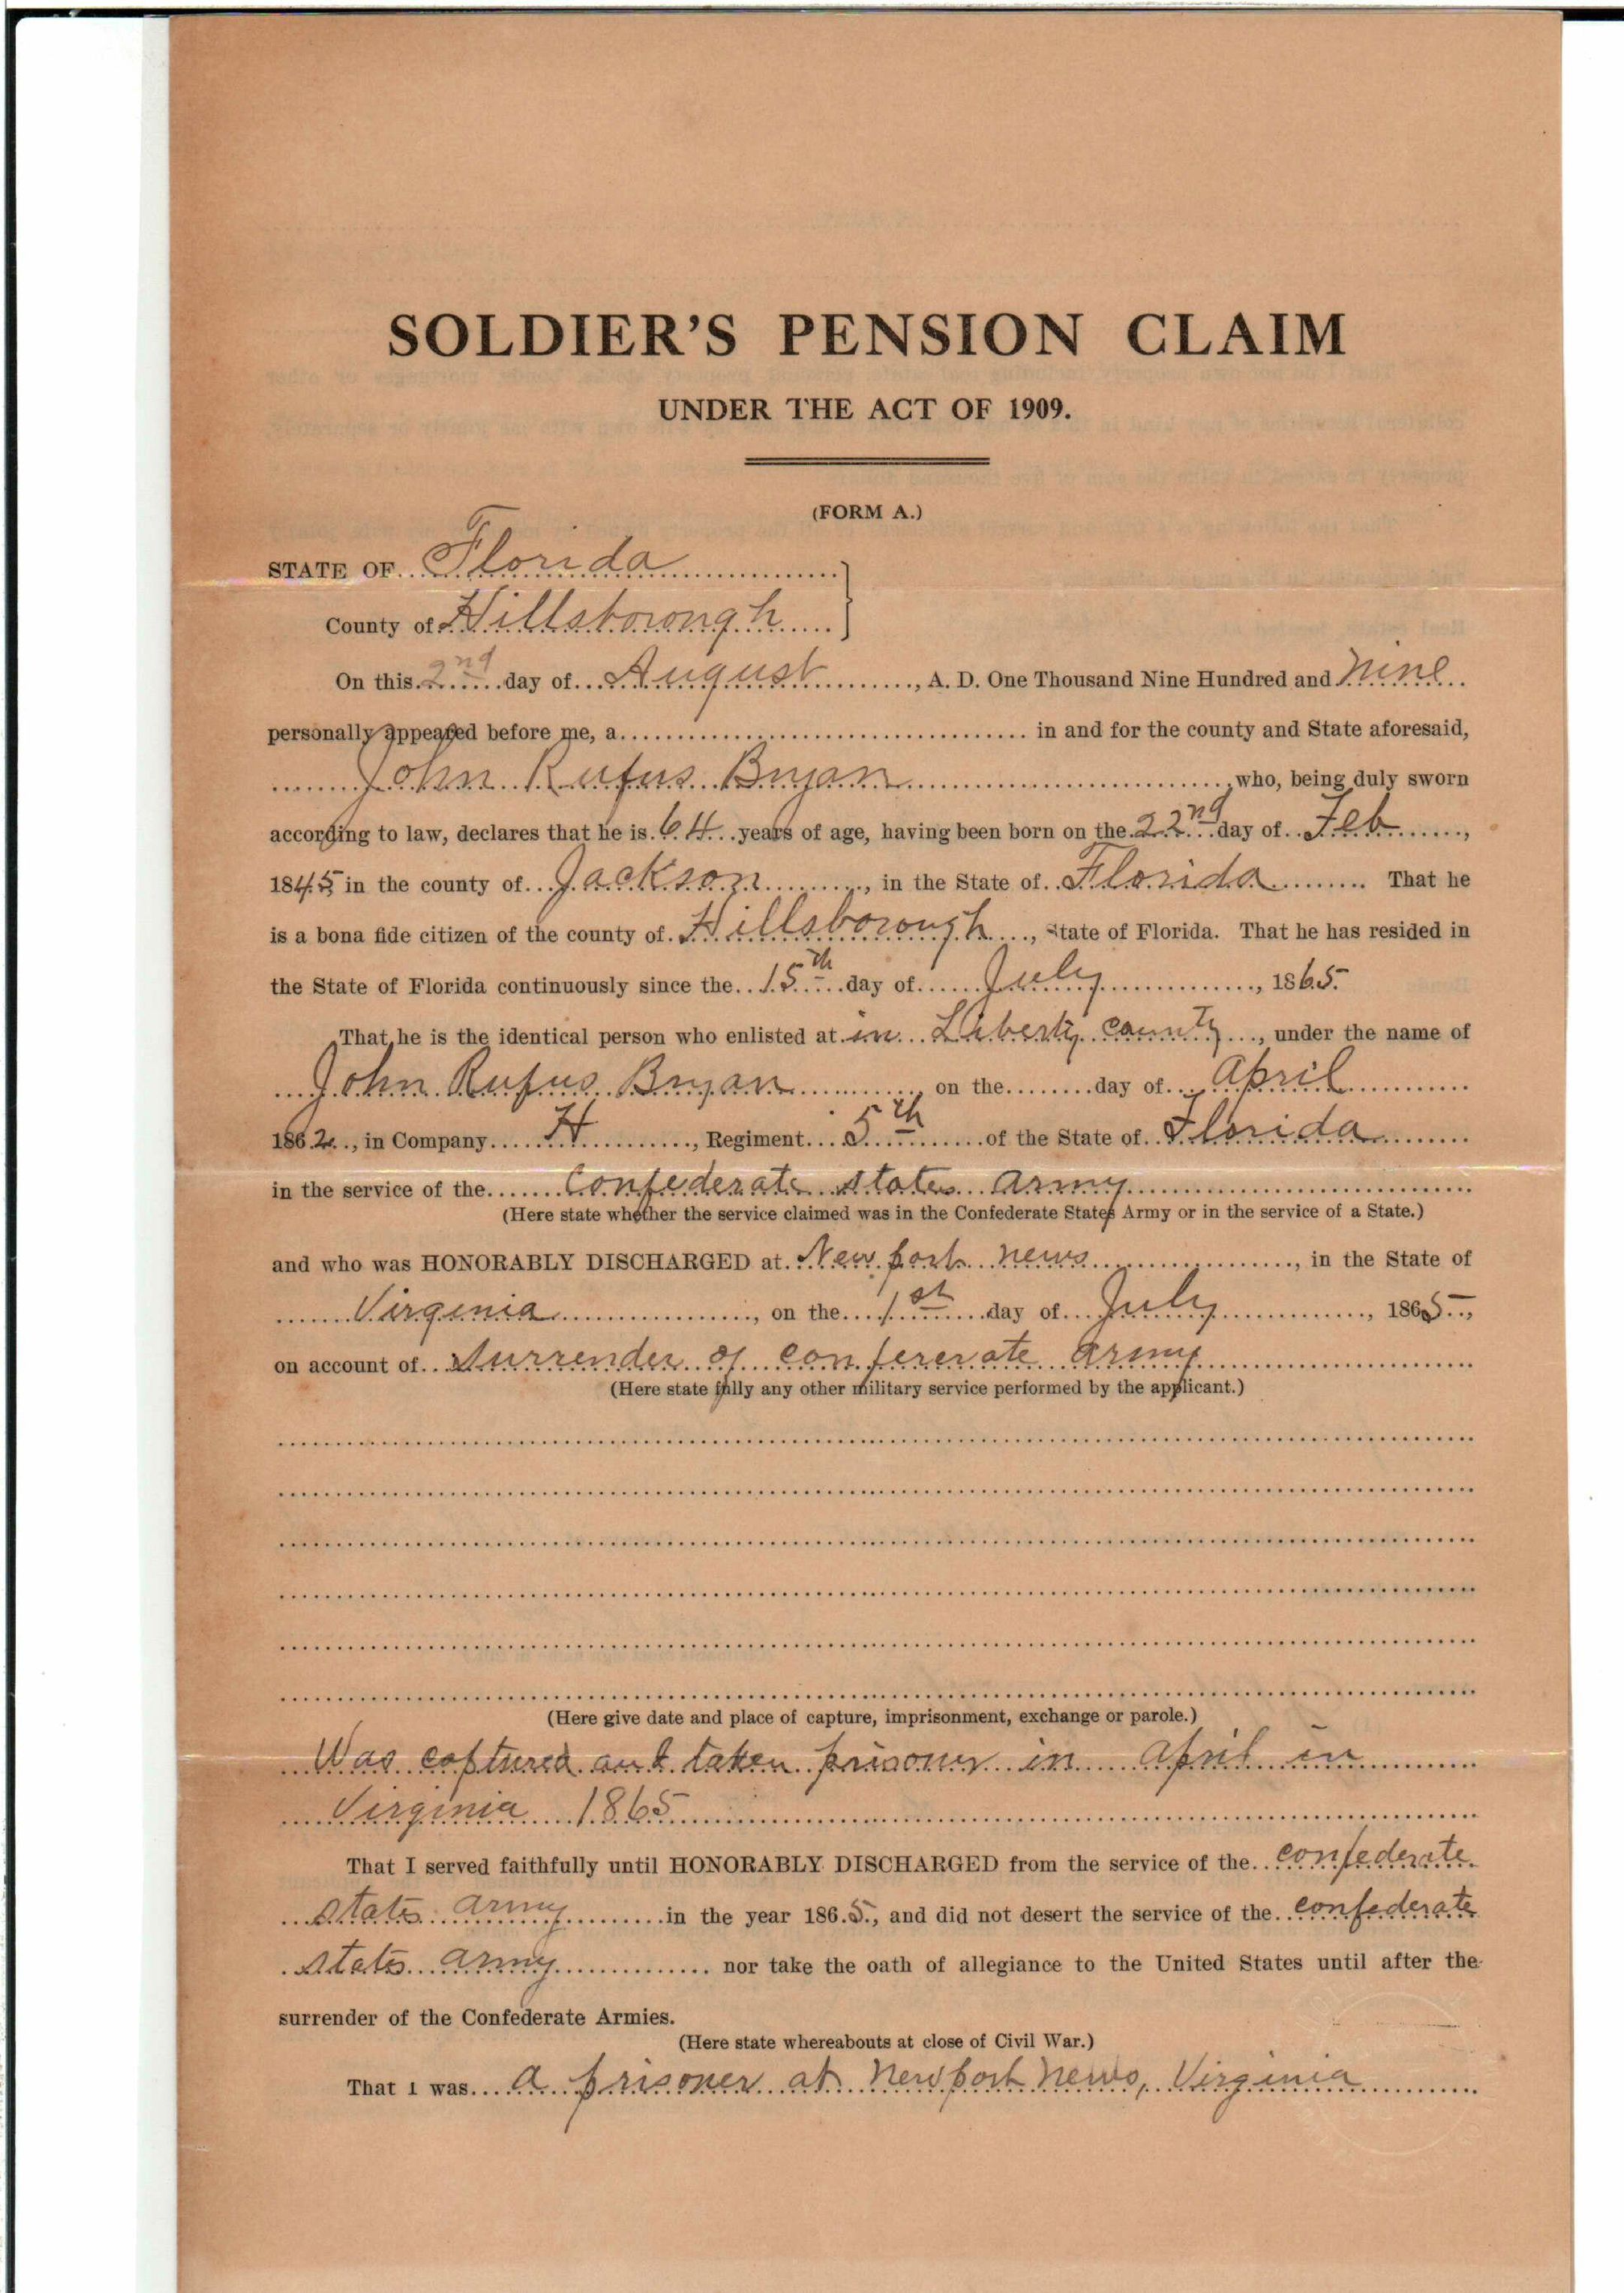 SOLDIER'S PENSION CLAIM
UNDER THE ACT OF 1909.
(FORM A.)
STATE OF Florida
County of Hillsborough
On this 2nd day of August, A. D. One Thousand Nine Hundred and Nine
personally appeared before me, a in and for the county and State aforesaid,
John Rufus Bryan, who, being duly sworn
according to law, declares that he is 64 years of age, having been born on the 22nd day of Feb,
1845 in the county of Jackson, in the State of Florida. That he
is a bona fide citizen of the county of Hillsborough, State of Florida. That he has resided in
the State of Florida continuously since the 15th day of July, 1865.
That he is the identical person who enlisted at in Liberty county, under the name of
John Rufus Bryan, on the day of April
1862, in Company H, Regiment 5th of the State of Florida
in the service of the Confederate states army
(Here state whether the service claimed was in the Confederate States Army or in the service of a State.)
and who was HONORABLY DISCHARGED at New port news, in the State of
Virginia, on the 1st day of July, 1865,
on account of surrender of confererate army
(Here state fully any other military service performed by the applicant.)
(Here give date and place of capture, imprisonment, exchange or parole.)
Was captured and taken prisoner in april in
Virginia 1865
That I served faithfully until HONORABLY DISCHARGED from the service of the confederate
states army in the year 1865, and did not desert the service of the confederate
states army nor take the oath of allegiance to the United States until after the
surrender of the Confederate Armies.
(Here state whereabouts at close of Civil War.)
That I was a prisoner at Newport News, Virginia